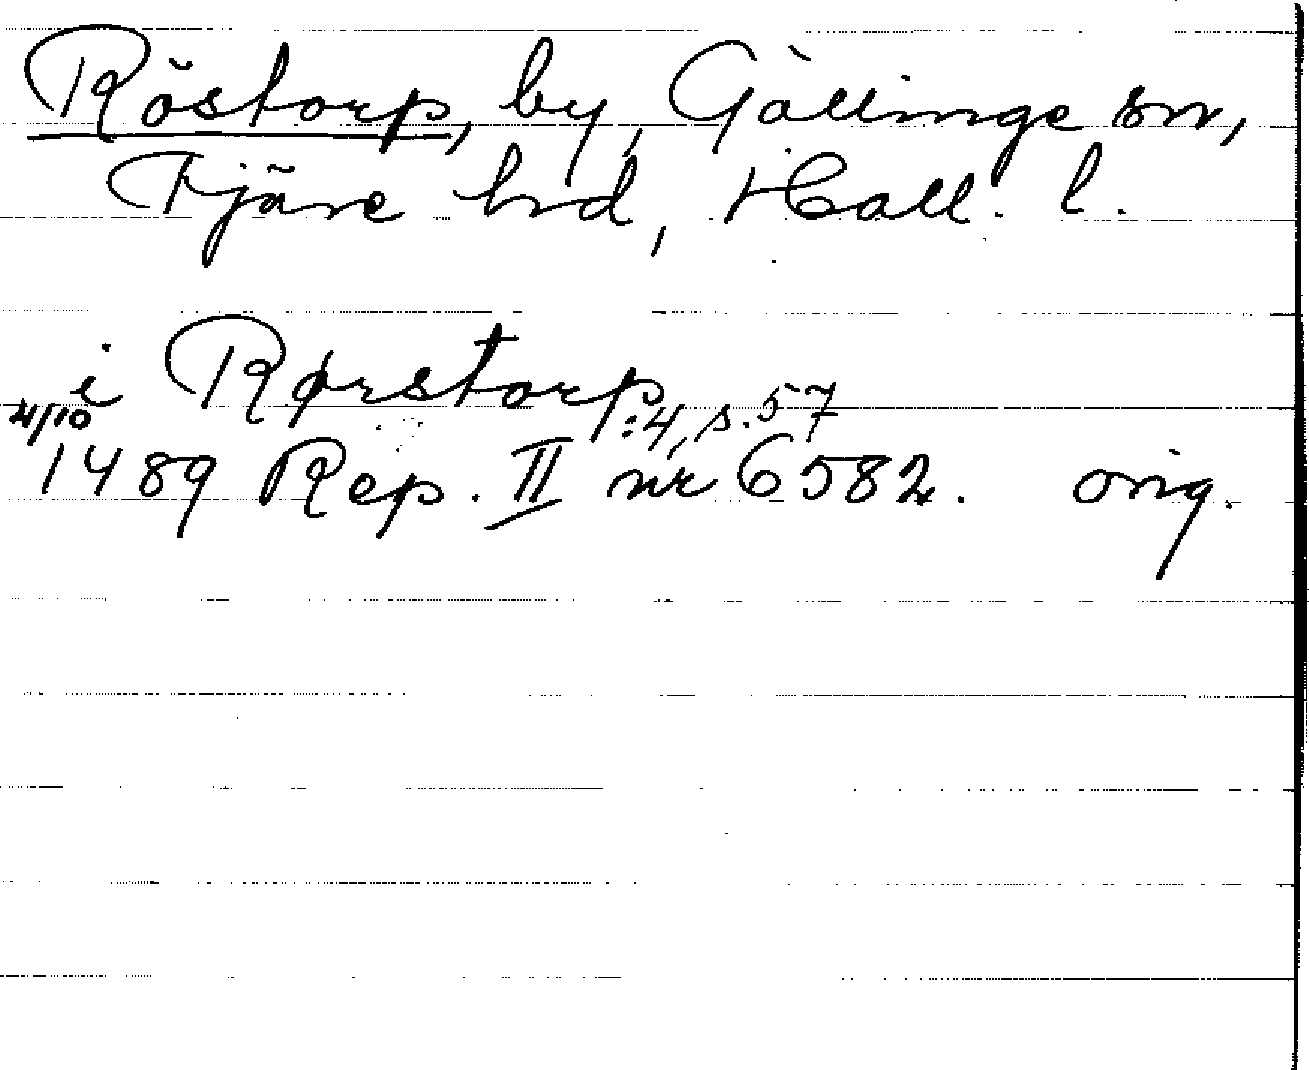 Röstorp, by, Gällinge sn,
Fjäre hrd, Hall. l.
i Rørstorp
4/10 :4, s. 57
1489 Rep. II nr 6582. orig.